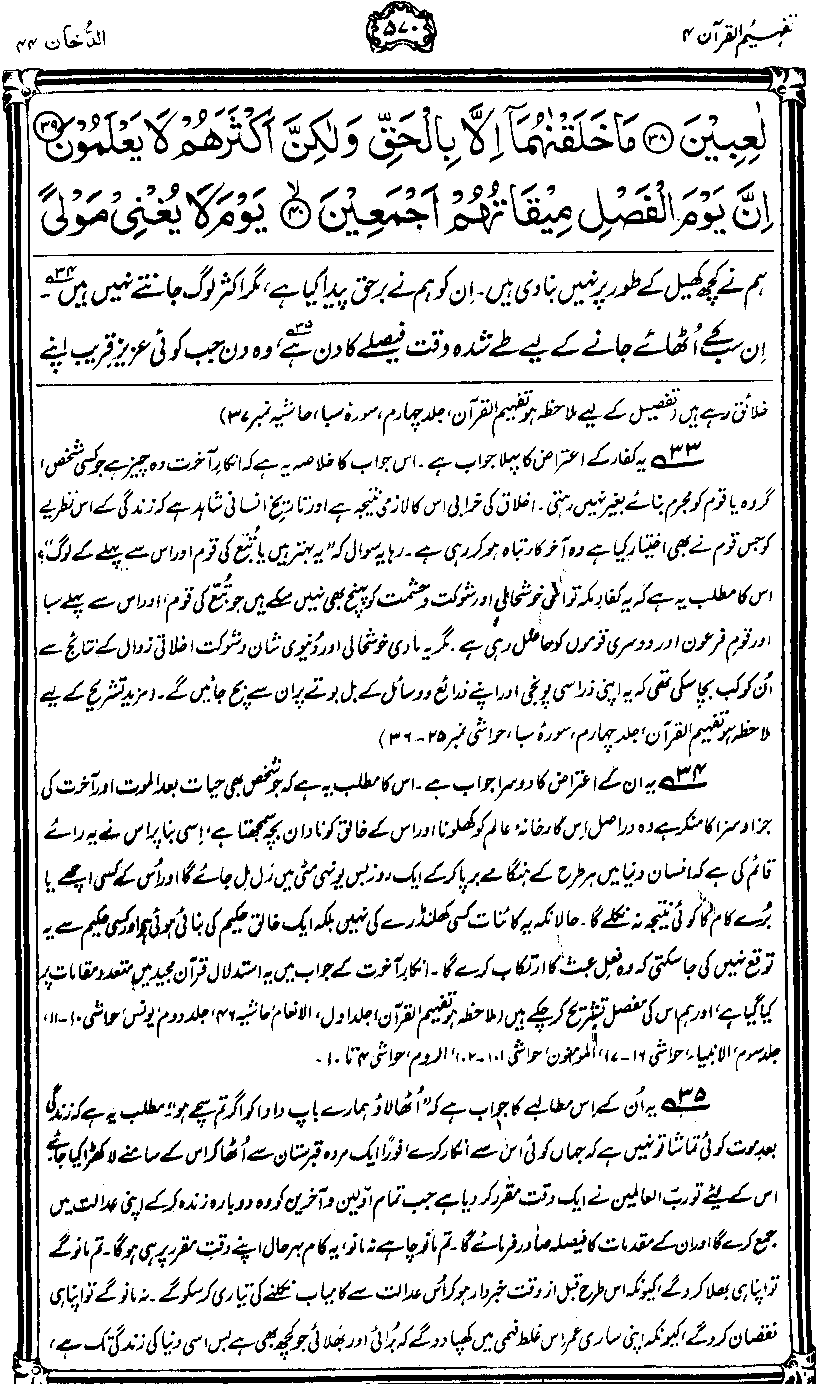 تفہیم القرآن ۴ ۵۷۰ الدُّخان ۴۴
لٰعِبِيْنَ ﴿۳۸﴾ مَا خَلَقْنٰهُمَاۤ اِلَّا بِالْحَقِّ وَلٰكِنَّ اَكْثَرَهُمْ لَا يَعْلَمُوْنَ ﴿۳۹﴾
اِنَّ يَوْمَ الْفَصْلِ مِيْقَاتُهُمْ اَجْمَعِيْنَ ﴿۴۰﴾ يَوْمَ لَا يُغْنِىْ مَوْلًى
ہم نے کچھ کھیل کے طور پر نہیں بنا دی ہیں۔ اِن کو ہم نے برحق پیدا کیا ہے، مگر اکثر لوگ جانتے نہیں ہیں۳۴۔
اِن سب کے اُٹھائے جانے کے لیے طے شدہ وقت فیصلے کا دن ہے۳۵، وہ دن جب کوئی عزیز قریب اپنے
خلائق رہے ہیں (تفصیل کے لیے ملاحظہ ہو تفہیم القرآن، جلد چہارم، سورۂ سبا، حاشیہ نمبر ۳۷)
۳۳ یہ کفار کے اعتراض کا پہلا جواب ہے۔ اس جواب کا خلاصہ یہ ہے کہ انکارِ آخرت وہ چیز ہے جو کسی شخص،
گروہ یا قوم کو مجرم بنائے بغیر نہیں رہتی۔ اخلاق کی خرابی اس کا لازمی نتیجہ ہے اور تاریخِ انسانی شاہد ہے کہ زندگی کے اس نظریے
کو جس قوم نے بھی اختیار کیا ہے وہ آخر کار تباہ ہو کر رہی ہے۔ رہا یہ سوال کہ "یہ بہتر ہیں یا تُبَّع کی قوم اور اس سے پہلے کے لوگ"؟
اس کا مطلب یہ ہے کہ یہ کفارِ مکہ تو اُس خوشحالی اور شوکت و حشمت کو پہنچ بھی نہیں سکے ہیں جو تُبَّع کی قوم، اور اس سے پہلے سبا
اور قومِ فرعون اور دوسری قوموں کو حاصل رہی ہے۔ مگر یہ مادی خوشحالی اور دُنیوی شان و شوکت اخلاقی زوال کے نتائج سے
اُن کو کب بچا سکی تھی کہ یہ اپنی ذرا سی پونجی اور اپنے ذرائع و وسائل کے بل بوتے پر ان سے بچ جائیں گے۔ (مزید تشریح کے لیے
ملاحظہ ہو تفہیم القرآن، جلد چہارم، سورۂ سبا، حواشی نمبر ۲۵-۳۶)
۳۴ یہ ان کے اعتراض کا دوسرا جواب ہے۔ اس کا مطلب یہ ہے کہ جو شخص بھی حیات بعد الموت اور آخرت کی
جزا و سزا کا منکر ہے وہ دراصل اِس کارخانۂ عالم کو کھلونا اور اس کے خالق کو نادان بچہ سمجھتا ہے، اِسی بنا پر اس نے یہ رائے
قائم کی ہے کہ انسان دنیا میں ہر طرح کے ہنگامے برپا کر کے ایک روز بس یونہی مٹی میں رَل مل جائے گا اور اُس کے کسی اچھے یا
بُرے کام کا کوئی نتیجہ نہ نکلے گا۔ حالانکہ یہ کائنات کسی کھلنڈرے کی نہیں بلکہ ایک خالقِ حکیم کی بنائی ہوئی ہے اور کسی حکیم سے یہ
توقع نہیں کی جا سکتی کہ وہ فعلِ عبث کا ارتکاب کرے گا۔ انکارِ آخرت کے جواب میں یہ استدلال قرآن مجید میں متعدد مقامات پر
کیا گیا ہے، اور ہم اس کی مفصل تشریح کر چکے ہیں (ملاحظہ ہو تفہیم القرآن، جلد اول، الانعام، حاشیہ ۴۶، جلد دوم، یونس، حواشی ۱۰-۱۱،
جلد سوم، الانبیاء، حواشی ۱۶-۱۷، المومنون، حواشی ۱۰۱-۱۰۲، الروم، حواشی ۴ تا ۱۰۔
۳۵ یہ اُن کے اس مطالبے کا جواب ہے کہ "اُٹھا لاؤ ہمارے باپ دادا کو اگر تم سچے ہو"، مطلب یہ ہے کہ زندگی
بعد موت کوئی تماشا تو نہیں ہے کہ جہاں کوئی اس سے انکار کرے، فوراً ایک مردہ قبرستان سے اُٹھا کر اس کے سامنے لا کھڑا کیا جائے
اس کے لیئے تو ربّ العالمین نے ایک وقت مقرر کر دیا ہے جب تمام اوّلین و آخرین کو وہ دوبارہ زندہ کر کے اپنی عدالت میں
جمع کرے گا اور ان کے مقدمات کا فیصلہ صادر فرمائے گا۔ تم مانو چاہے نہ مانو، یہ کام بہرحال اپنے وقتِ مقرر پر ہی ہو گا۔ تم مانو گے
تو اپنا ہی بھلا کرو گے، کیونکہ اس طرح قبل از وقت خبردار ہو کر اُس عدالت سے کامیاب نکلنے کی تیاری کر سکو گے۔ نہ مانو گے تو اپنا ہی
نقصان کرو گے، کیونکہ اپنی ساری عمر اس غلط فہمی میں کھپا دو گے کہ بُرائی اور بھلائی جو کچھ بھی ہے بس اسی دنیا کی زندگی تک ہے،